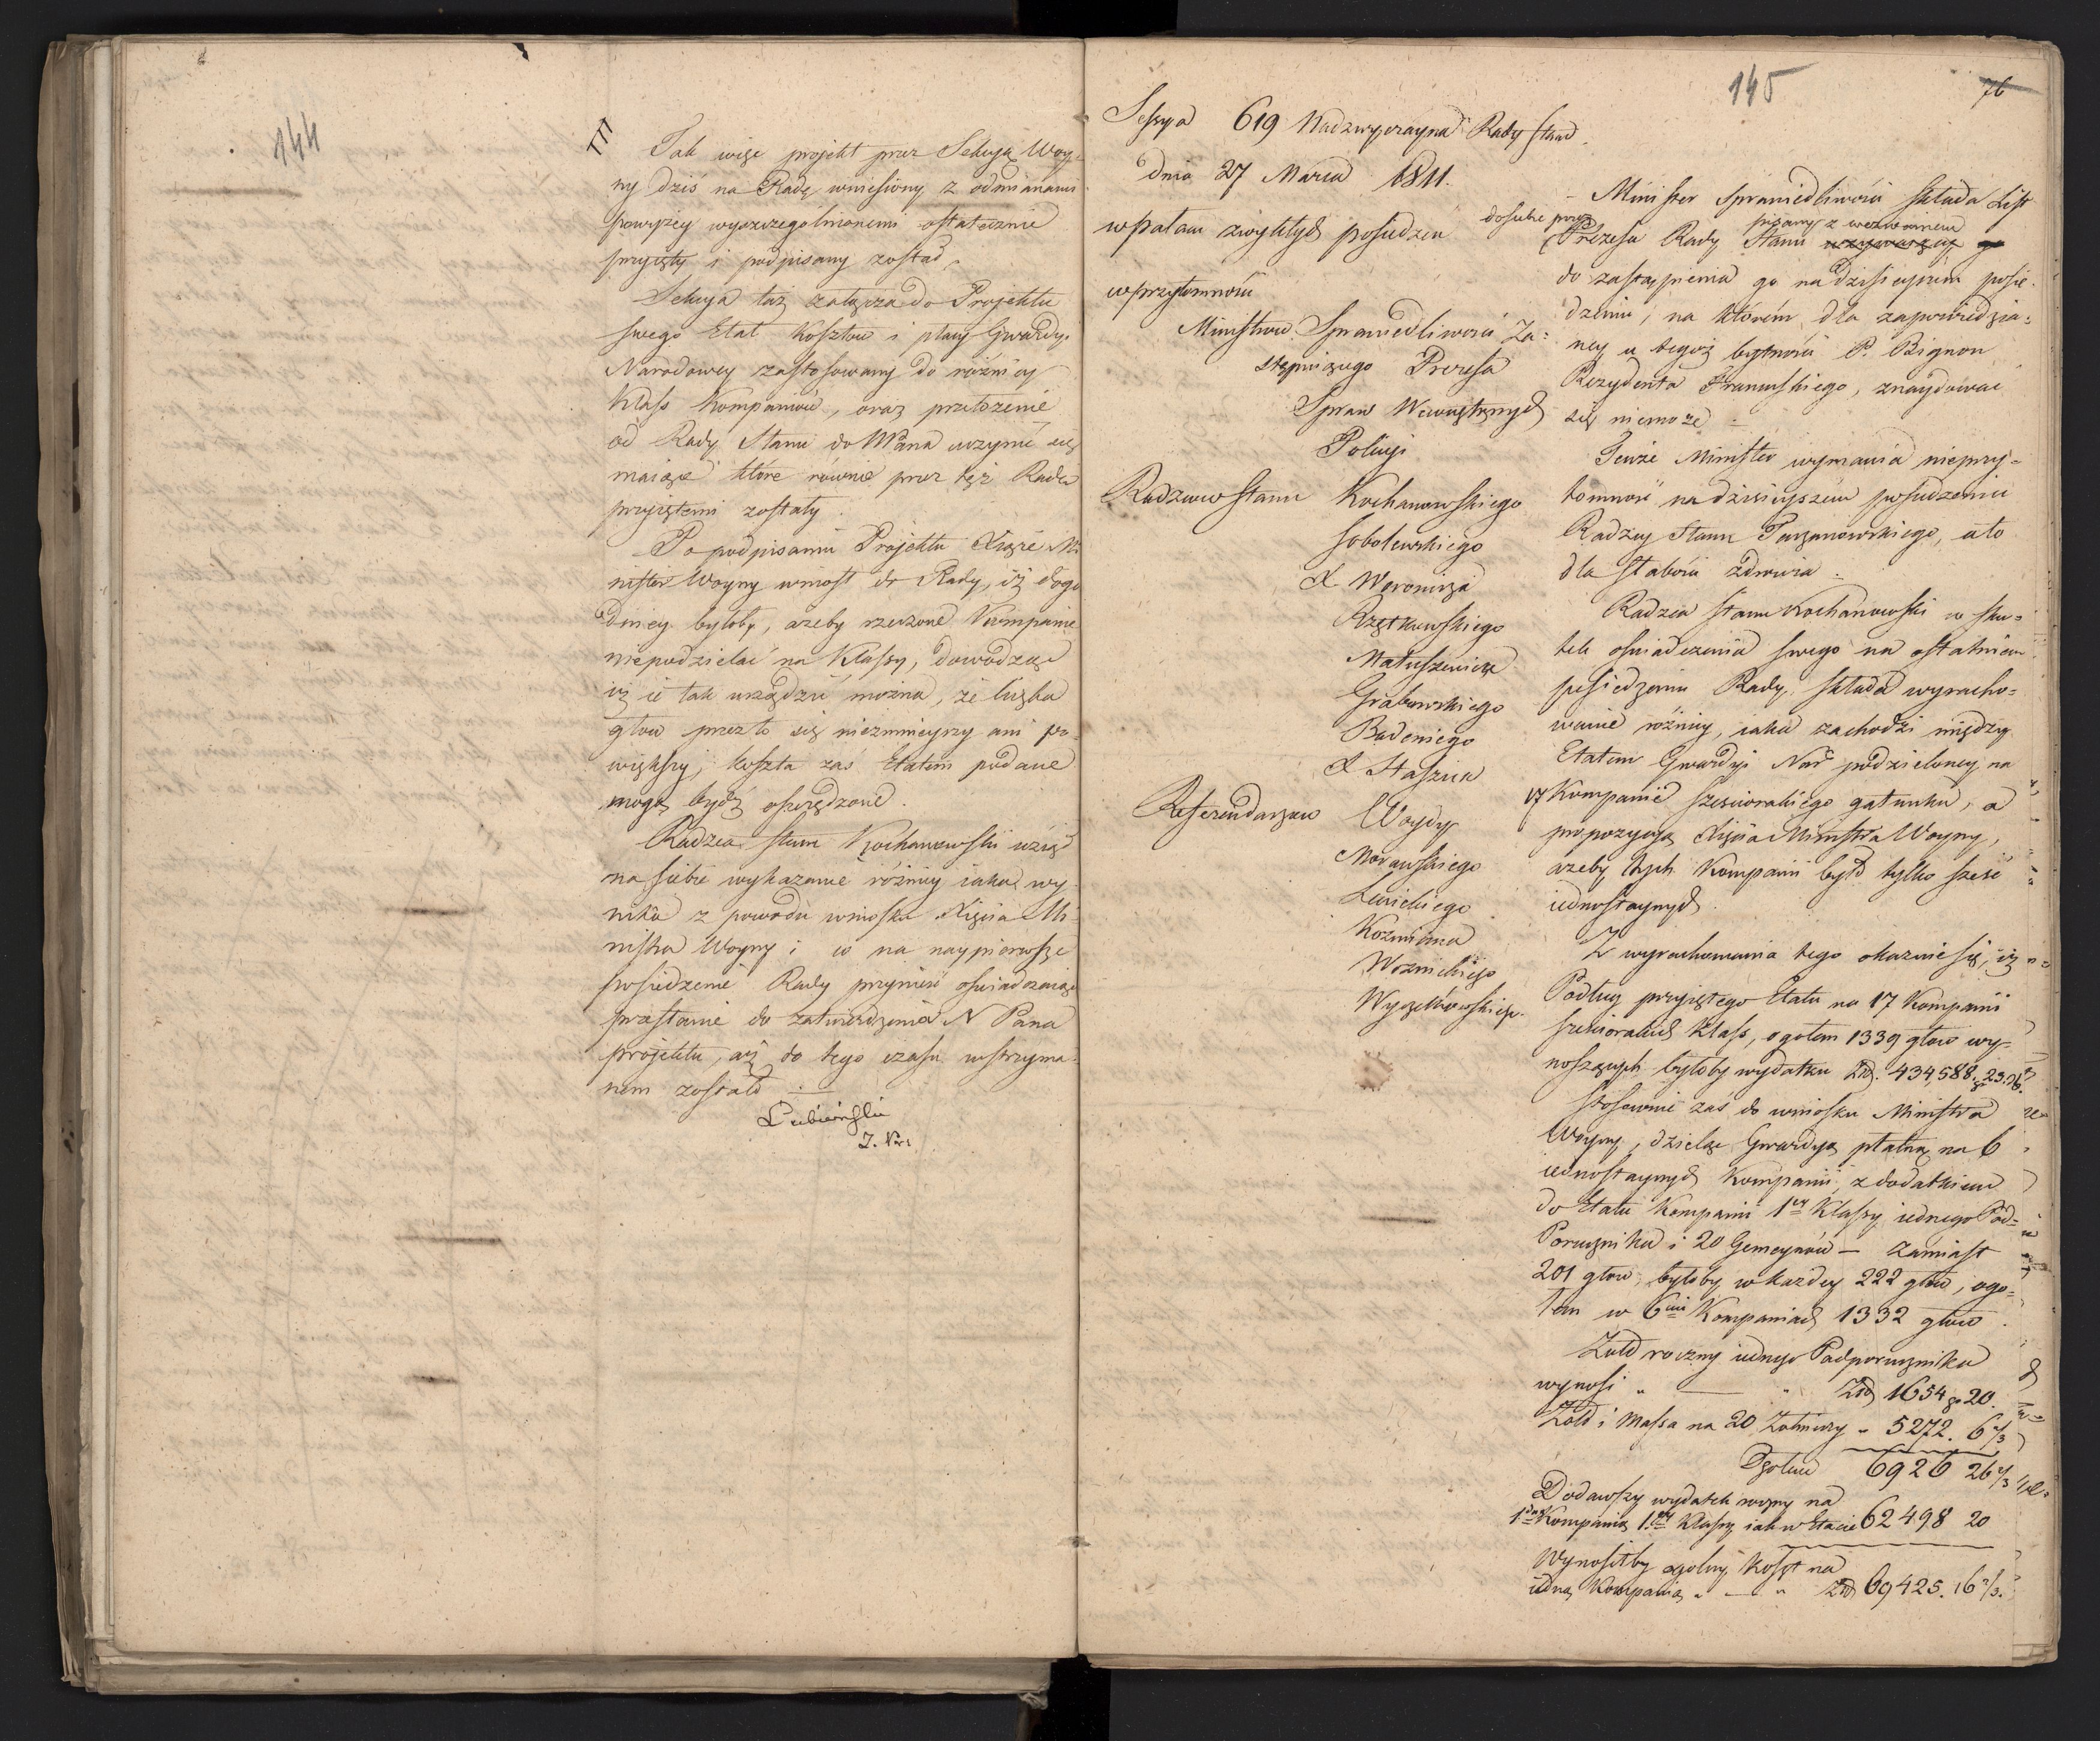 144
Tak więc projekt przez Sekcyą Woy-
ny dziś na Radę wniesiony z odmianami
powyżey wyszczególnionemi ostatecznie
przyięty i podpisany został.
Sekcya taż załącza do Projektu
swego Etat kosztów i płacy Gwardyi
Narodowey zastosowany do różnicy
Klass Kompaniów, oraz przełożenie
od Rady Stanu do NPana uczynić się
maiące które równie przez tęż Radę
przyiętemi zostały.
Po podpisaniu Projektu Xiąże Mi-
nister Woyny wniosł do Rady, iż dogo-
dniey byłoby, ażeby rzeczone Kompanie
niepodzielać na Klassy, dowodząc
iż ie tak urządzić można, że liczba
głow przez to się niezmnieyszy ani po-
większy, koszta zaś Etatem podane
mogą bydź oszczędzone.
Radzca Stanu Kochanowski wziął
na siebie wykazanie różnicy iaka wy-
nika z powodu wniosku Xięcia Mi-
nistra Woyny i to na naypierwsze
posiedzenie Rady przynieść oświadczając
przesłanie do zatwierdzenia N Pana
projektu, aż do tego czasu wstrzyma-
nem zostało.
Lubieński
145
76
Sessya 619 Nadzwyczayna Rady Stanu
dnia 27 Marca 1811.
w pałacu zwykłych posiedzeń
w przytomności
Ministrów Sprawiedliwości Za-
stępuiącego Prezesa
Spraw Wewnętrznych
Policyi
Radzców Stanu Kochanowskiego
Sobolewskiego
X Woronicza
Rzętkowskiego
Matuszewicza
Grabowskiego
Badeniego
X Staszica
Referendarzów Woydy
Morawskiego
Lewickiego
Kozmiana
Woznickiego
Wyczechowskiego.
Minister Sprawiedliwości składa List
do siebie przez pisany z wezwaniem
Prezesa Rady Stanu
do zastąpienia go na dzisieyszem posie-
dzeniu, na którém dla zapowiedzia-
ney u tegoż bytności P. Bignon
Rezydenta Francuskiego, znaydować
się niemoże.
Tenże Minister wymawia nieprzy-
tomność na dzisieyszem posiedzeniu
Radzcy Stanu Tarzanowskiego, a to
dla słabości zdrowia.
Radzca Stanu Kochanowski w sku-
tek oświadczenia swego na ostatniem
posiedzeniu Rady, składa wyracho-
wanie różnicy, iaka zachodzi między
Etatem Gwardyi Nar podzieloney na
17 Kompanie sześciorakiego gatunku, a
propozycyą Xięcia Ministra Woyny,
ażeby tych Kompanii było tylko sześć
iednostaynych.
Z wyrachowania tego okazuie się, iż
Podług przyiętego Etatu na 17 Kompanii
sześciorakich Klass, ogołem 1339 głow wy-
noszących byłoby wydatku Złł. 434,588. gr 23.
Stosownie zaś do wniosku Ministra
Woyny, dzieląc Gwardyą płatną na 6
iednostaynych Kompanii, z dodatkiem
do Etatu Kompanii 1ey Klassy iednego Pod-
Porucznika i 20 Gemeynów - zamiast
201 głow, byłoby w każdey 222 głow, ogo-
łem w 6ciu Kompaniach 1332 głow.
Żołd roczny iednego Podporucznika
wynosi " — " Złł 1654 gr 20.
Żołd i Massa na 20 Żołnierzy " 5272. 6 2/3
Ogołem 6926 26 2/3
Dodawszy wydatek roczny na
1ną Kompanią 1ey Klassy iak w Etacie 62498 20
Wynosiłby ogolny koszt na
iedną Kompanią " — " Złł 69425. 16 2/3.